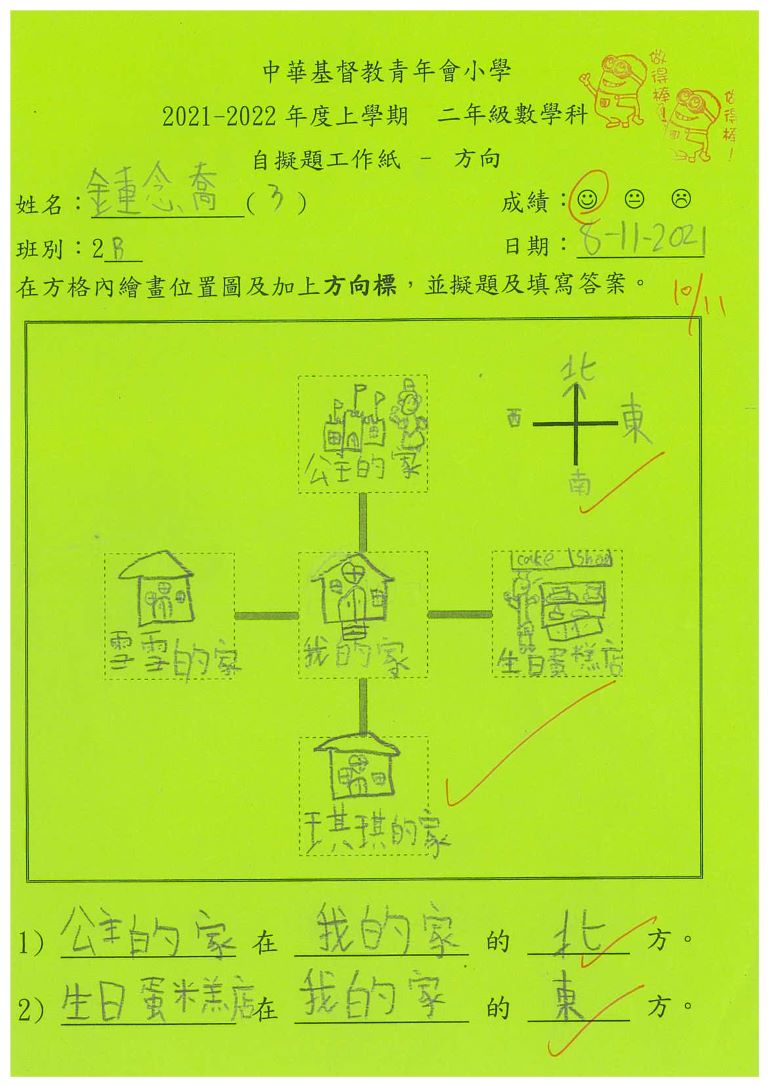 中華基督教青年會小學
2021-2022 年度上學期 二年級數學科
做得棒!
做得棒!
自擬題工作紙 - 方向
姓名：鍾念喬(3) 成績：
班別：2B 日期：8-11-2021
在方格內繪畫位置圖及加上方向標，並擬題及填寫答案。
10/11
北
西 東
南
公主的家
cake Shop
雪雪的家 我的家 生日蛋糕店
琪琪的家
1) 公主的家 在 我的家 的 北 方。
2) 生日蛋糕店 在 我的家 的 東 方。